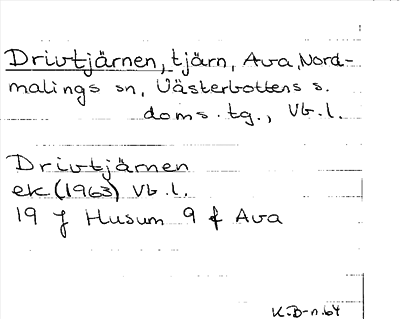 Drivtjärnen, tjärn, Ava, Nord-
malings sn, Västerbottens s.
doms.tg., Vb.l.
Drivtjärnen
ek (1963) Vb.l.
19 J Husum 9 f Ava
K.B-n.64